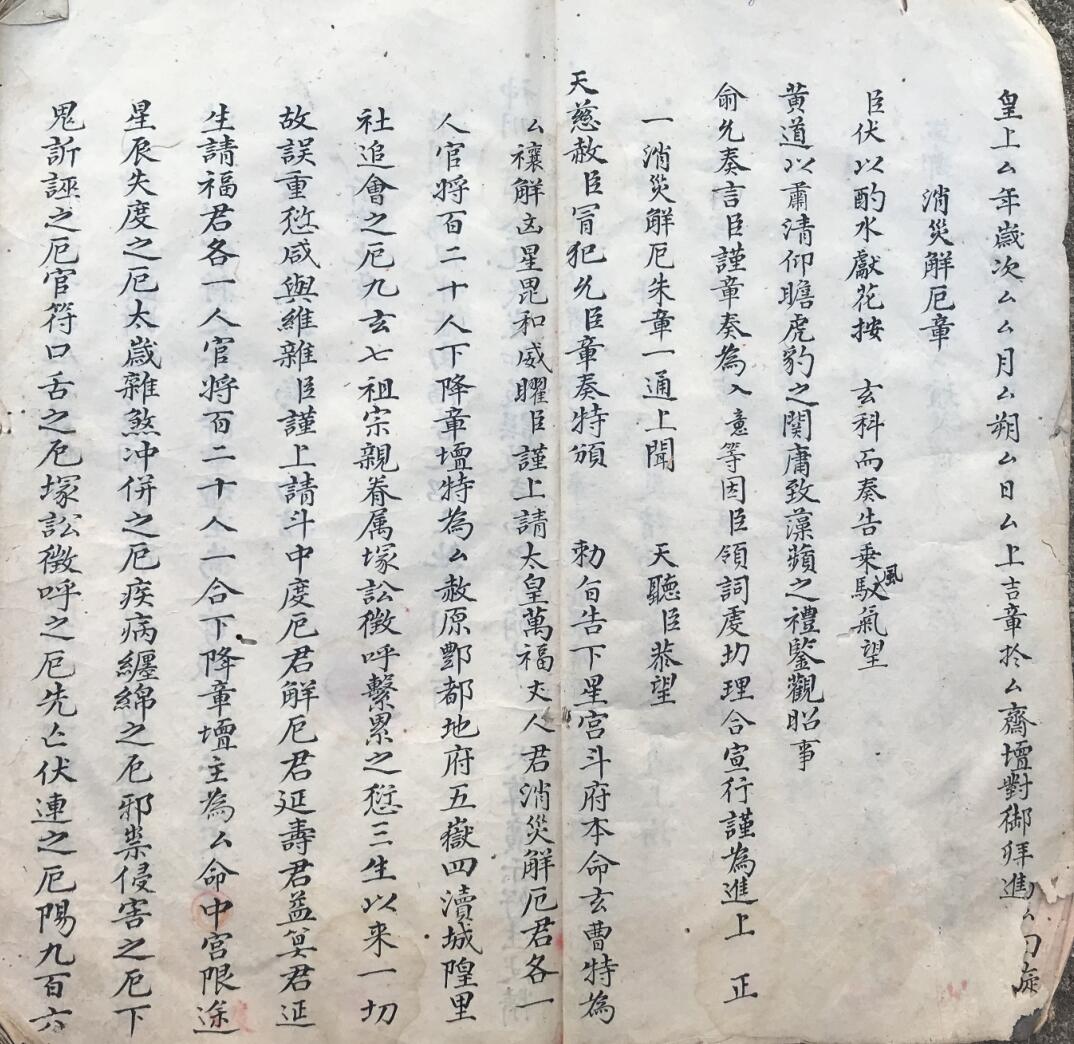 皇上厶年歲次厶厶月厶朔厶日厶上吉章於厶齋壇對御拜進
消災解厄章
臣伏以酌水獻花按 玄科而奏告乘馭風氣望
黄道以肅清仰瞻虎豹之関庸致藻蘋之禮鑒觀昭事
俞允奏言臣謹章奏為入意等因臣領詞虔切理合宣行謹為進上 正
一消災解厄朱章一通上聞 天聽臣恭望
天慈赦臣冐犯允臣章奏特頒 勅旨告下星宮斗府本命玄曹特為
厶禳解凶星毘和威曜臣謹上請太皇萬福丈人君消災解厄君各一
人官將百二十人下降章壇特為厶赦原酆都地府五嶽四瀆城隍里
社追會之厄九玄七祖宗親眷属塚訟徴呼繫累之愆三生以来一切
故誤重愆咸與維雜臣謹上請斗中度厄君解厄君延壽君益筭君延
生請福君各一人官將百二十人一合下降章壇主為厶命中宮限途
星辰失度之厄太歲雜煞冲併之厄疾病纏綿之厄邪祟侵害之厄下
鬼訴誣之厄官符口舌之厄塚訟徴呼之厄先亡伏連之厄陽九百六